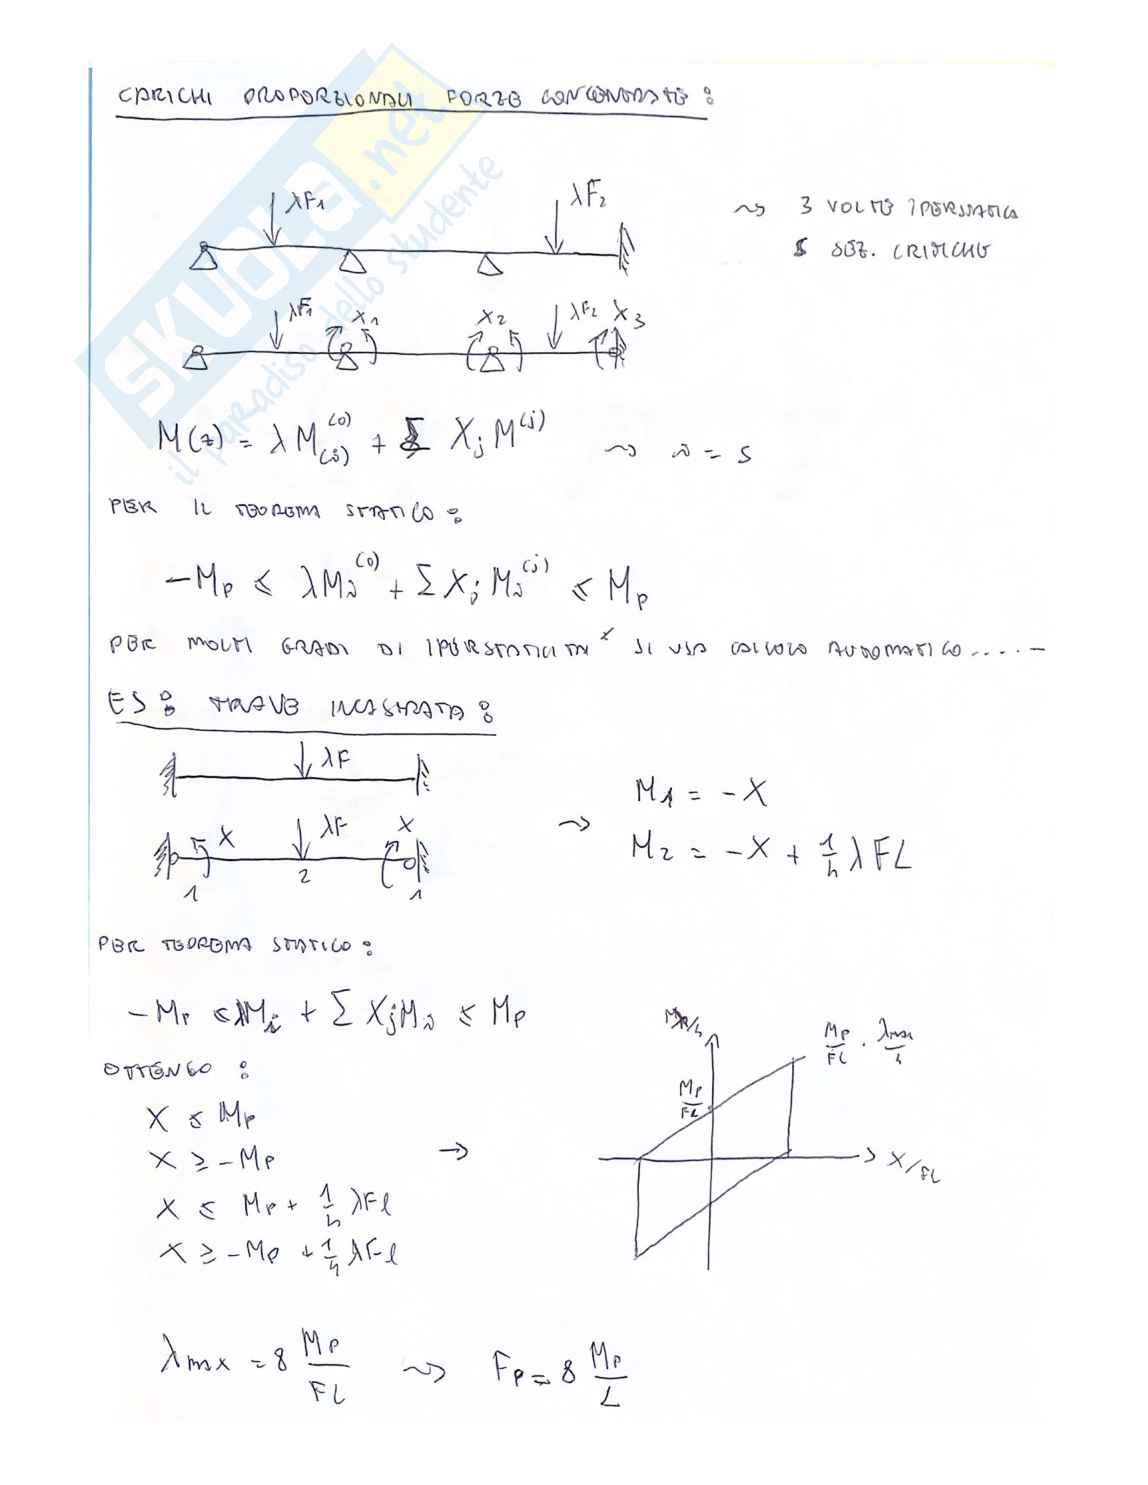 CARICHI PROPORZIONALI FORZE CONCENTRATE:
λF₁
λF₂
~> 3 VOLTE IPERSTATICA
5 SEZ. CRITICHE
λF₁ X₁ X₂ λF₂ X₃
M(z) = λ M(z)^(0) + Σ Xⱼ M^(j) ~> i = 5
PER IL TEOREMA STATICO:
-Mp ≤ λMi^(0) + Σ Xj Mi^(j) ≤ Mp
PER MOLTI GRADI DI IPERSTATICITA' SI USA CALCOLO AUTOMATICO.....-
ES: TRAVE INCASTRATA:
λF
X λF X
1 2 1
~> M₁ = -X
M₂ = -X + 1/4 λFL
PER TEOREMA STATICO:
-Mp ≤ λMi + Σ XjMi ≤ Mp
OTTENGO:
X ≤ Mp
X ≥ -Mp
X ≤ Mp + 1/4 λFl
X ≥ -Mp + 1/4 λFl
->
Mp/FL · λmax/4
Mp/FL
X/FL
λmax = 8 Mp/FL ~> Fp = 8 Mp/L
SKUOLA.net
il paradiso dello studente